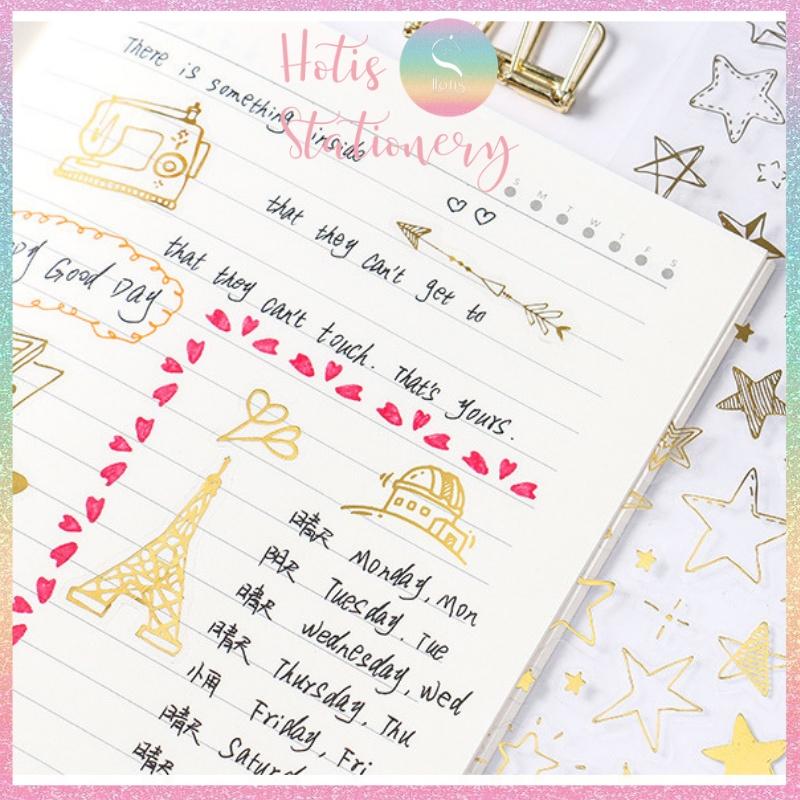 Hotis
Hotis
Stationery
There is something inside
S M T W T F S
that they can't get to
Good Day
that they can't touch. That's yours.
晴天 Monday, Mon
阴天 Tuesday, Tue
晴天 Wednesday, Wed
晴天 Thursday, Thu
小雨 Friday, Fri
晴天
晴天